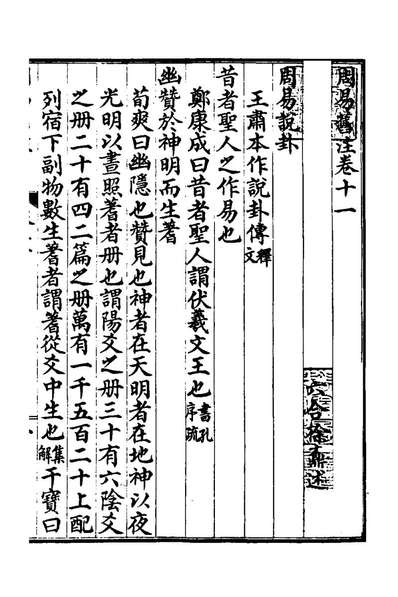 周易舊注卷十一
六合徐鼒述
周易說卦
王肅本作說卦傳釋文
昔者聖人之作易也
鄭康成曰昔者聖人謂伏羲文王也書孔序疏
幽贊於神明而生蓍
荀爽曰幽隱也贊見也神者在天明者在地神以夜
光明以晝照蓍者册也謂陽爻之册三十有六陰爻
之册二十有四二篇之册萬有一千五百二十上配
列宿下副物數生蓍者謂蓍從爻中生也集解干寶曰